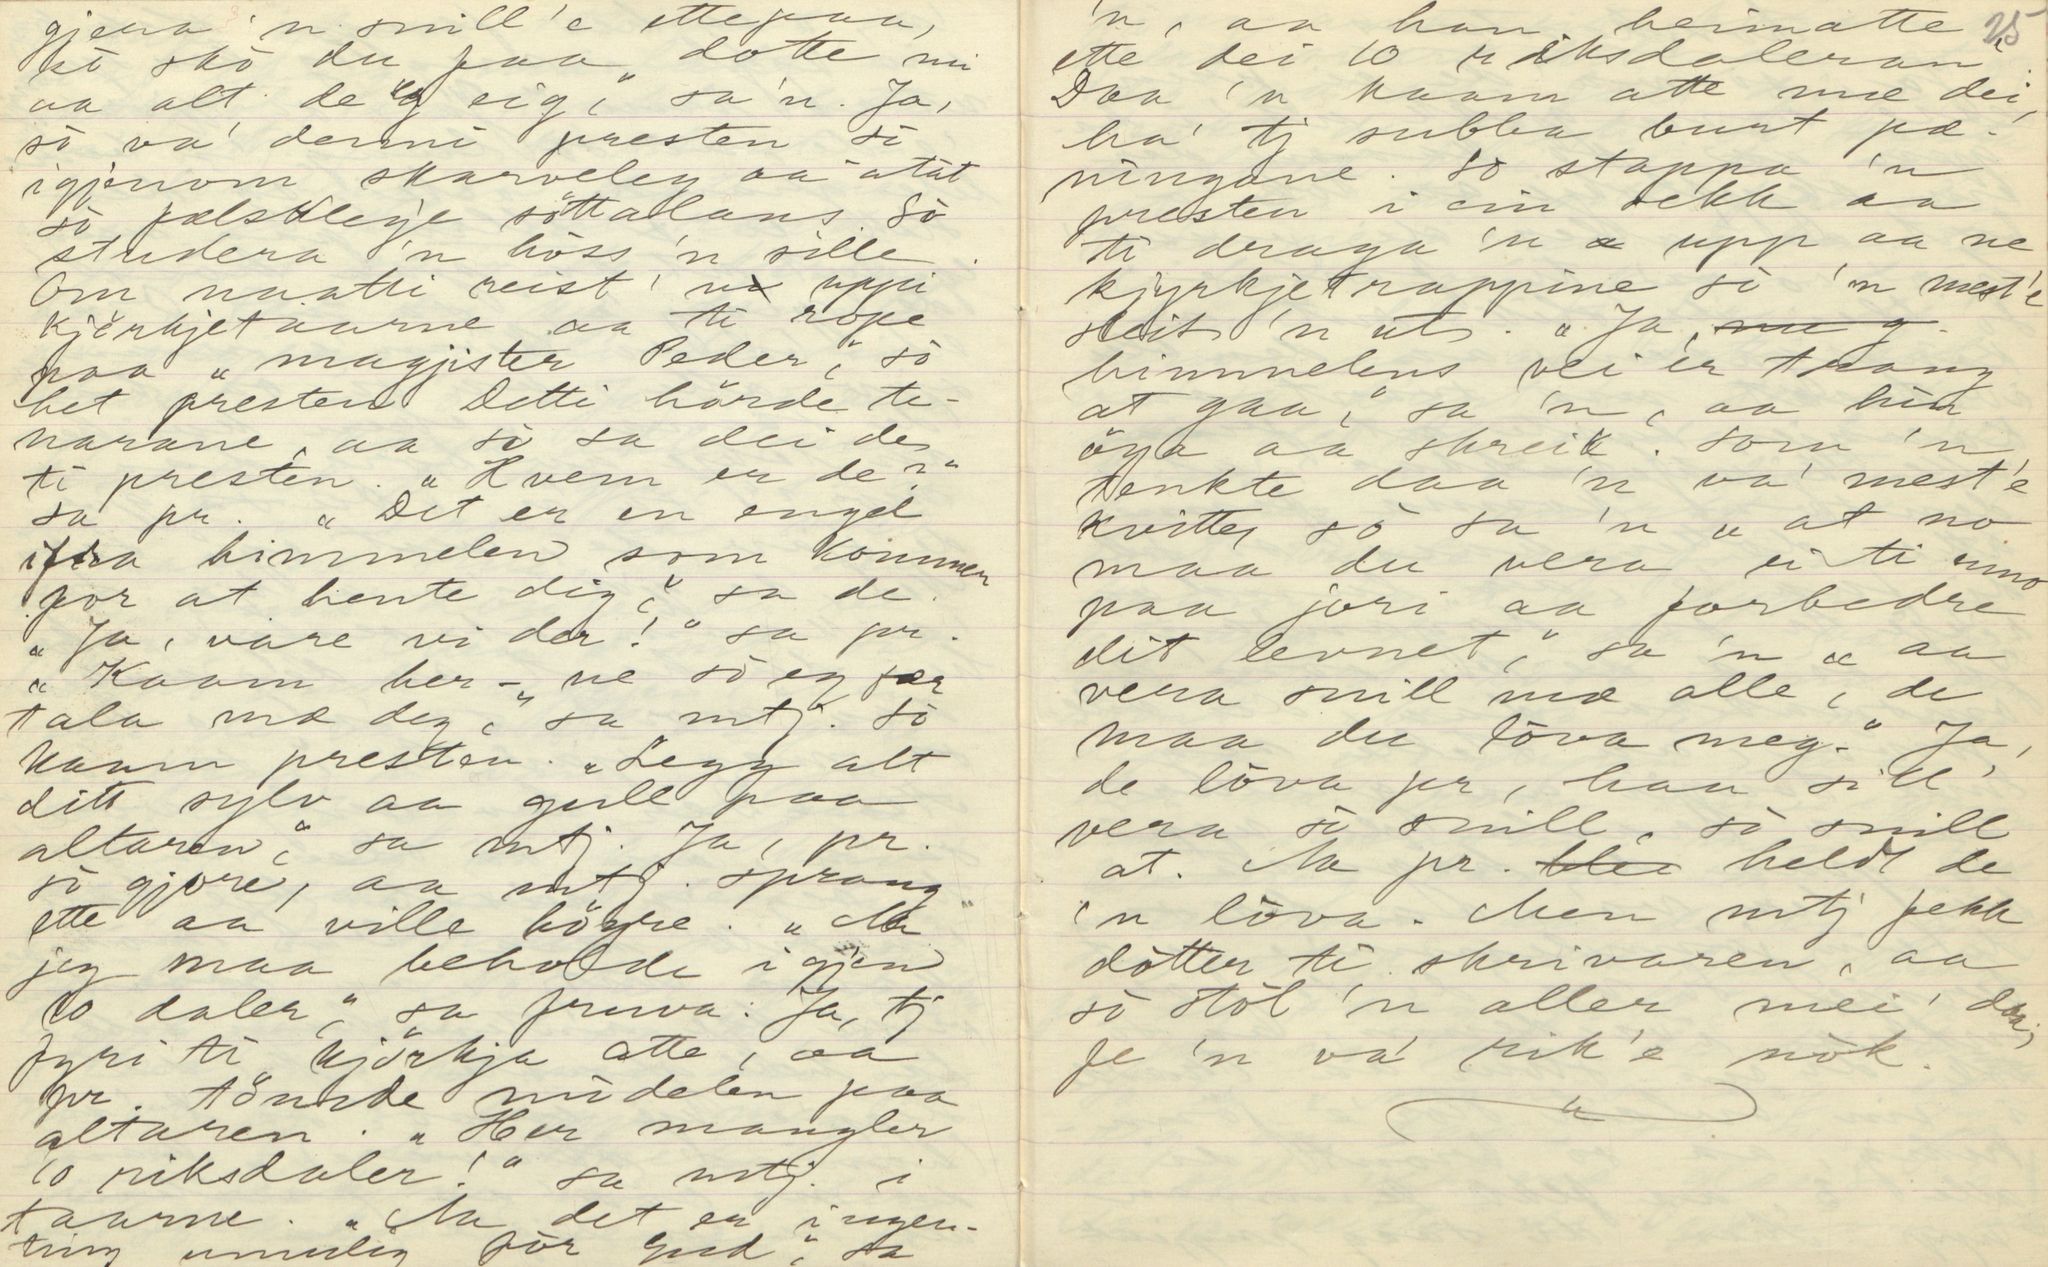 gjera 'n snill'e ettepaa,
so sko du faa dotte mi
aa alt de "g eig," sa 'n. Ja,
so va' denni presten so
igjenom skarveleg aa ätät
so fælslleije söttalans. So
studera 'n höss 'n sille.
Om naatti reist' n uppi
kjörkjetaarne aa ti rope
paa „magjister Peder," so
het presten. Detti hörde te-
narane, aa so sa dei de
ti presten. „Hvem er de?"
sa pr. „Det er en engel
ifra himmelen som kommer
for at hente dig," sa de.
„Ja, vare vi der!" sa pr.
„Kaam her-ne so eg fær
tala mæ deg," sa mtj. So
kaam presten. „Legg alt
ditt sylv aa gull paa
altaren," sa mtj. Ja, pr.
so gjore, aa mtj. sprang
ette aa ville höyre. „Aa
jeg maa beholde igjen
10 daler," sa fruva: Ja, tj
fyri ti kjörkja atte, aa
pr. tömde midelen paa
altaren. „Her mangler
10 riksdaler!" sa mtj. i
taarne. „Aa det er ingen-
ting umulig for Gud," sa
25
'n, aa han heimatte
ette dei 10 riksdaleran.
Daa 'n kaam atte mæ dei,
ha' tj subba burt pæ-
ningane. So stappa 'n
presten i ein sekk aa
ti draga 'n upp aa ne
kjyrkjetrappine so 'n mest'e
sleit 'n ut. „Ja,
himmelens vei er trang
at gaa," sa 'n, aa hin
öya aa skreik. Som 'n
tenkte daa 'n va' mest'e
kvitte, so sa 'n „at no
maa du vera ei ti
paa jori aa forbedre
dit levnet," sa 'n „aa
vera snill mæ alle, de
maa du lova meg." Ja,
de lova pr, han sill'
vera so snill, so snill
at. Aa pr. heldt de
'n lova. Men mtj fekk
dotter ti skrivaren, aa
so stol 'n aller mei'
fe 'n va' rik'e nok.